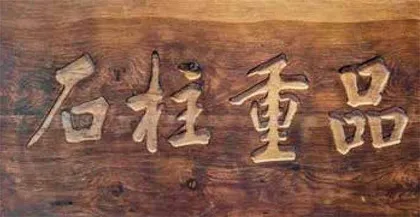 石柱重品